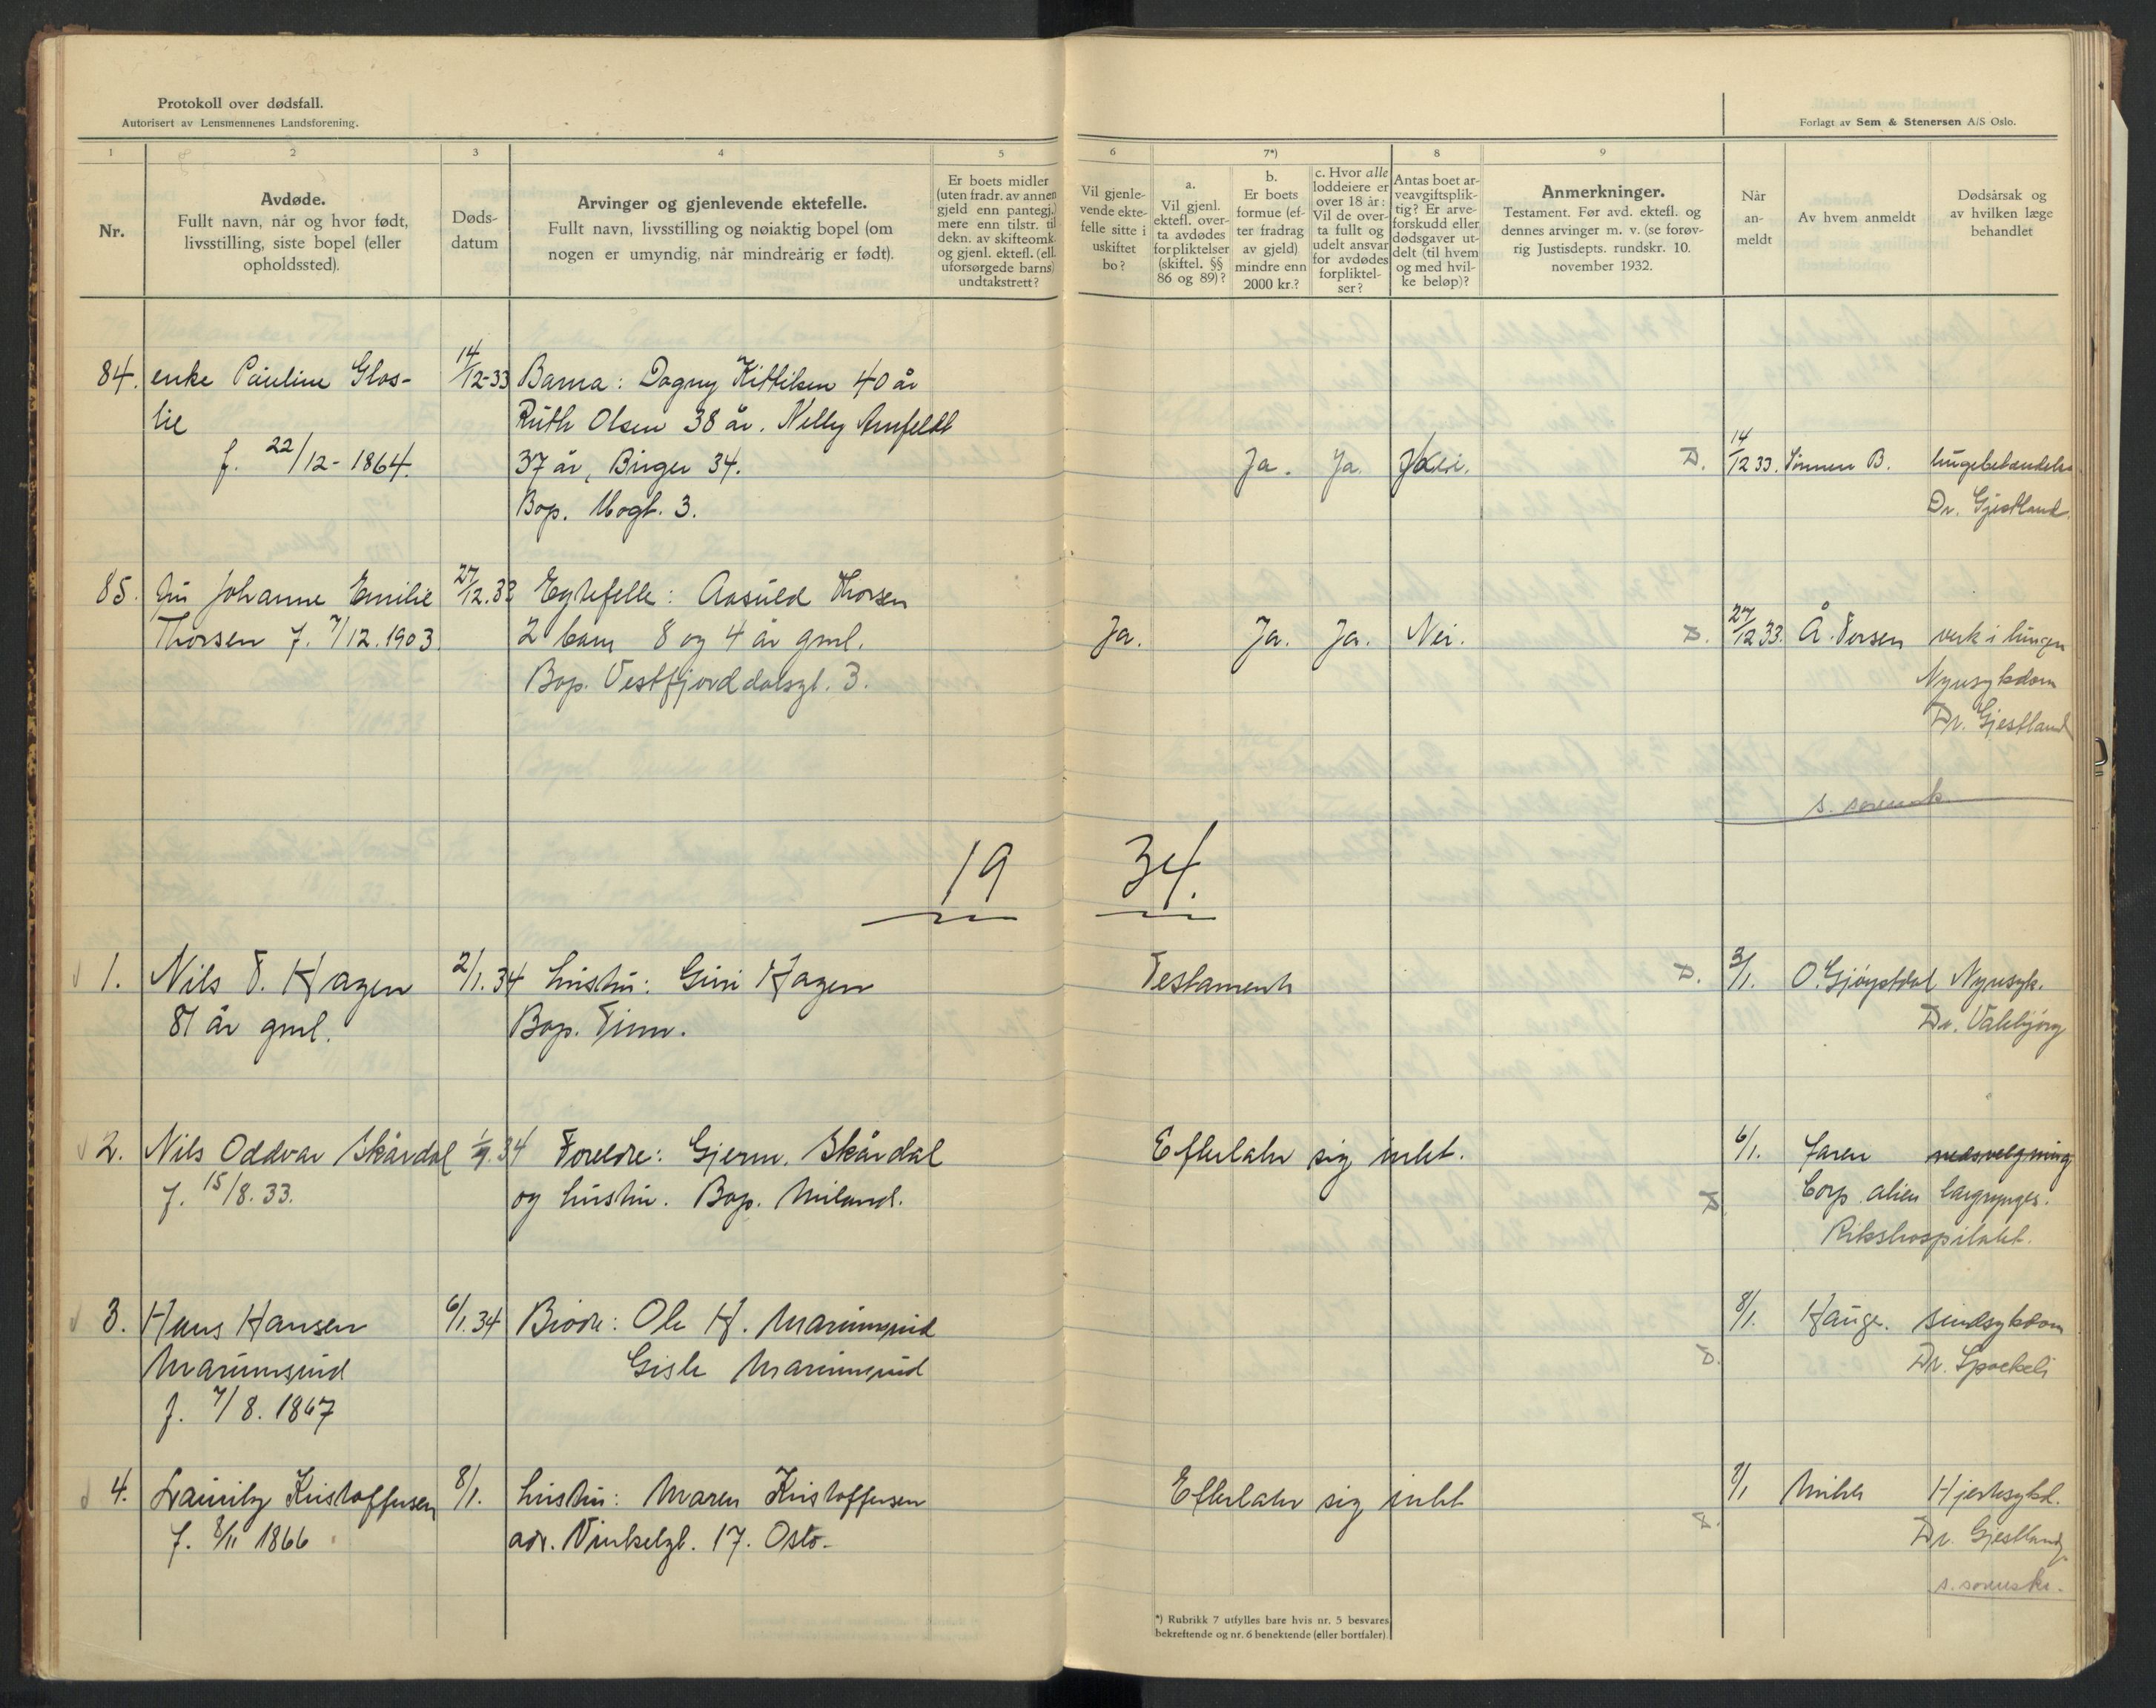 Protokoll over dødsfall.
Autorisert av Lensmennenes Landsforening.
Forlagt av Sem & Stenersen A/S Oslo.
1 2 3 4 5 6 7*) 8 9
Nr.
Avdøde.
Fullt navn, når og hvor født,
livsstilling, siste bopel (eller
opholdssted).
Døds-
datum
Arvinger og gjenlevende ektefelle.
Fullt navn, livsstilling og nøiaktig bopel (om
nogen er umyndig, når mindreårig er født).
Er boets midler
(uten fradr. av annen
gjeld enn pantegj.)
mere enn tilstr. til
dekn. av skifteomk.
og gjenl. ektef. (ell.
uforsørgede barns)
undtakstrett?
Vil gjenle-
vende ekte-
felle sitte i
uskiftet
bo?
a.
Vil gjenl.
ektefl. over-
ta avdødes
forpliktelser
(skiftel. §§
86 og 89)?
b.
Er boets
formue (ef-
ter fradrag
av gjeld)
mindre enn
2000 kr.?
c. Hvor alle
loddeiere er
over 18 år:
Vil de over-
ta fullt og
udelt ansvar
for avdødes
forpliktel-
ser?
Antas boet ar-
veavgiftsplik-
tig? Er arve-
forskudd eller
dødsgaver ut-
delt (til hvem
og med hvil-
ke beløp)?
Anmerkninger.
Testament. Før avd. ektefl. og
dennes arvinger m. v. (se forøv-
rig Justisdepts. rundskr. 10.
november 1932.
Når
an-
meldt
Av hvem anmeldt
Dødsårsak og
av hvilken læge
behandlet
84. enke Pauline Glos- 14/12-33 Barna: Dagny Kittilsen 40 år
lie Ruth Olsen 38 år. Nelly Arnfeldt
f. 22/12-1864. 37 år, Birger 34. Ja. Ja. Nei. D. 14/12 33. Sønnen B. lungebetendelse
Bop. Mogt. 3. Dr. Gjestland.
85. fru Johanne Emilie 27/12.33 Egtefelle: Aasuld Thorsen
Thorsen f. 7/12.1903 2 barn 8 og 4 år gml. Ja. Ja. Ja. Nei. D. 27/12 33. Å. Torsen verk i lungen
Bop. Vestfjorddalsgt. 3. Nyresykdom
Dr. Gjestland
s. sorensk.
19 34.
1. Nils T. Hagen 2/1.34 hustru: Guri Hagen Testament D. 3/1. O. Gjøystdal Nyresyk.
81 år gml. Bop. Tinn. Dr. Valebjørg
2. Nils Oddvar Skårdal 34 Foreldre: Gjerm. Skårdal Efterlater sig intet. 6/1. faren
f. 15/8.33. og hustru. Bop. Miland. D Corp. alien
Rikshospitalet.
3. Hans Hansen 6/1.34 Brødre: Ole H. Marumsrud 8/1. Hauge. sindsykdom
Marumsrud Gisle Marumsrud D. Dr.
f. 7/8. 1867
4. Kristoffersen 8/1. hustru: Maren Kristoffersen Efterlater sig intet Hjertesykd.
f. 8/11 1866 adr. Vinkelgt. 17. Oslo. D. Dr. Gjestland.
s. sorenskr.
*) Rubrikk 7 utfylles bare hvis nr. 5 besvares
bekreftende og nr. 6 benektende (eller bortfaler).